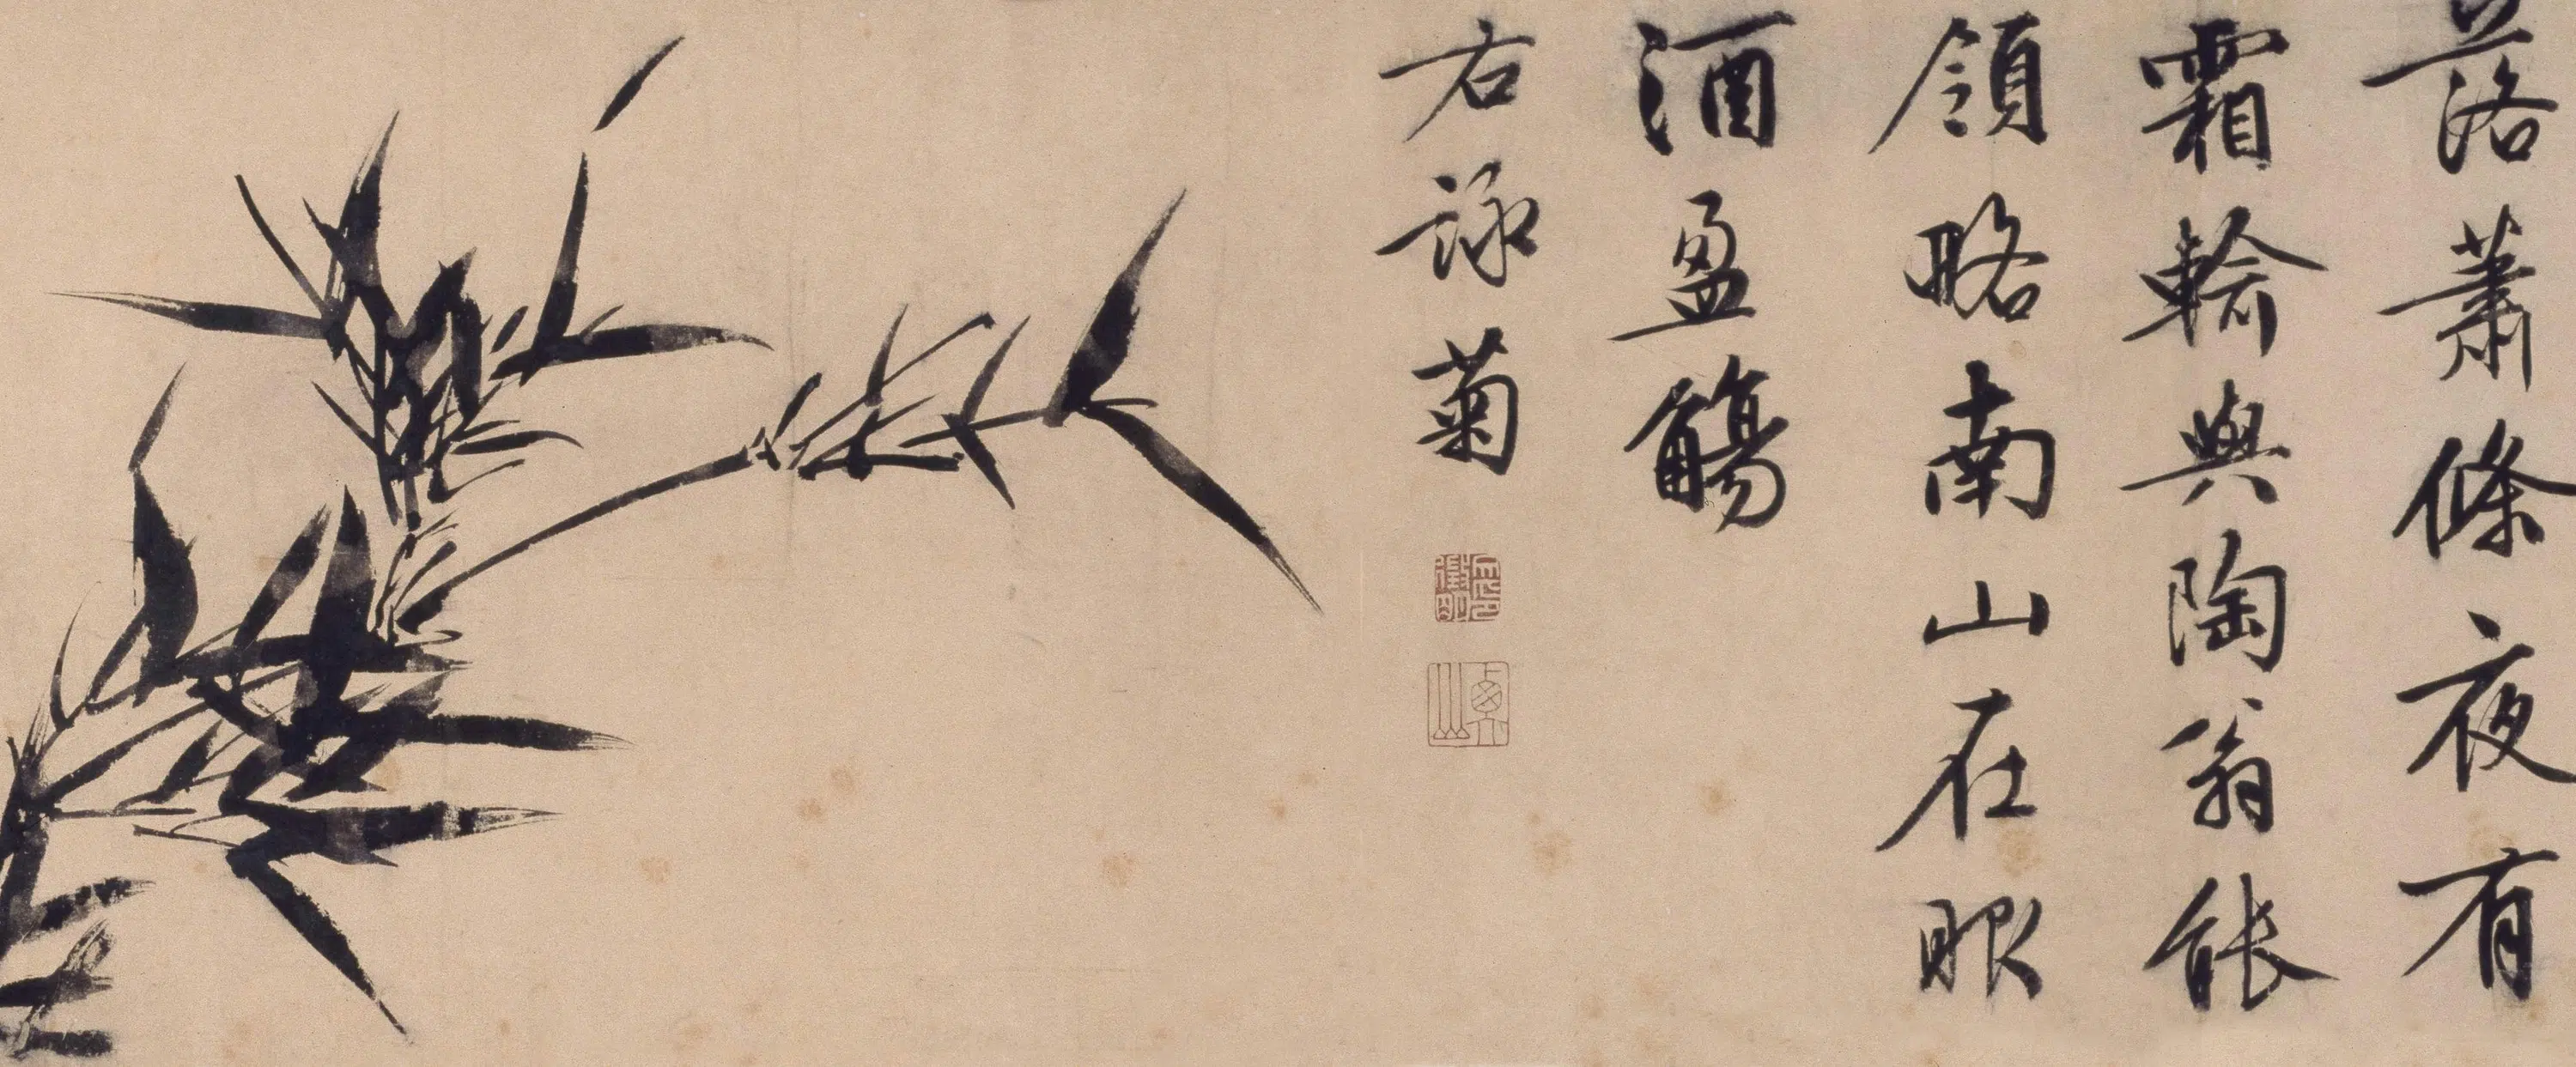 落蕭條夜有
霜輸與陶翁能
領略南山在眼
酒盈觴
右詠菊